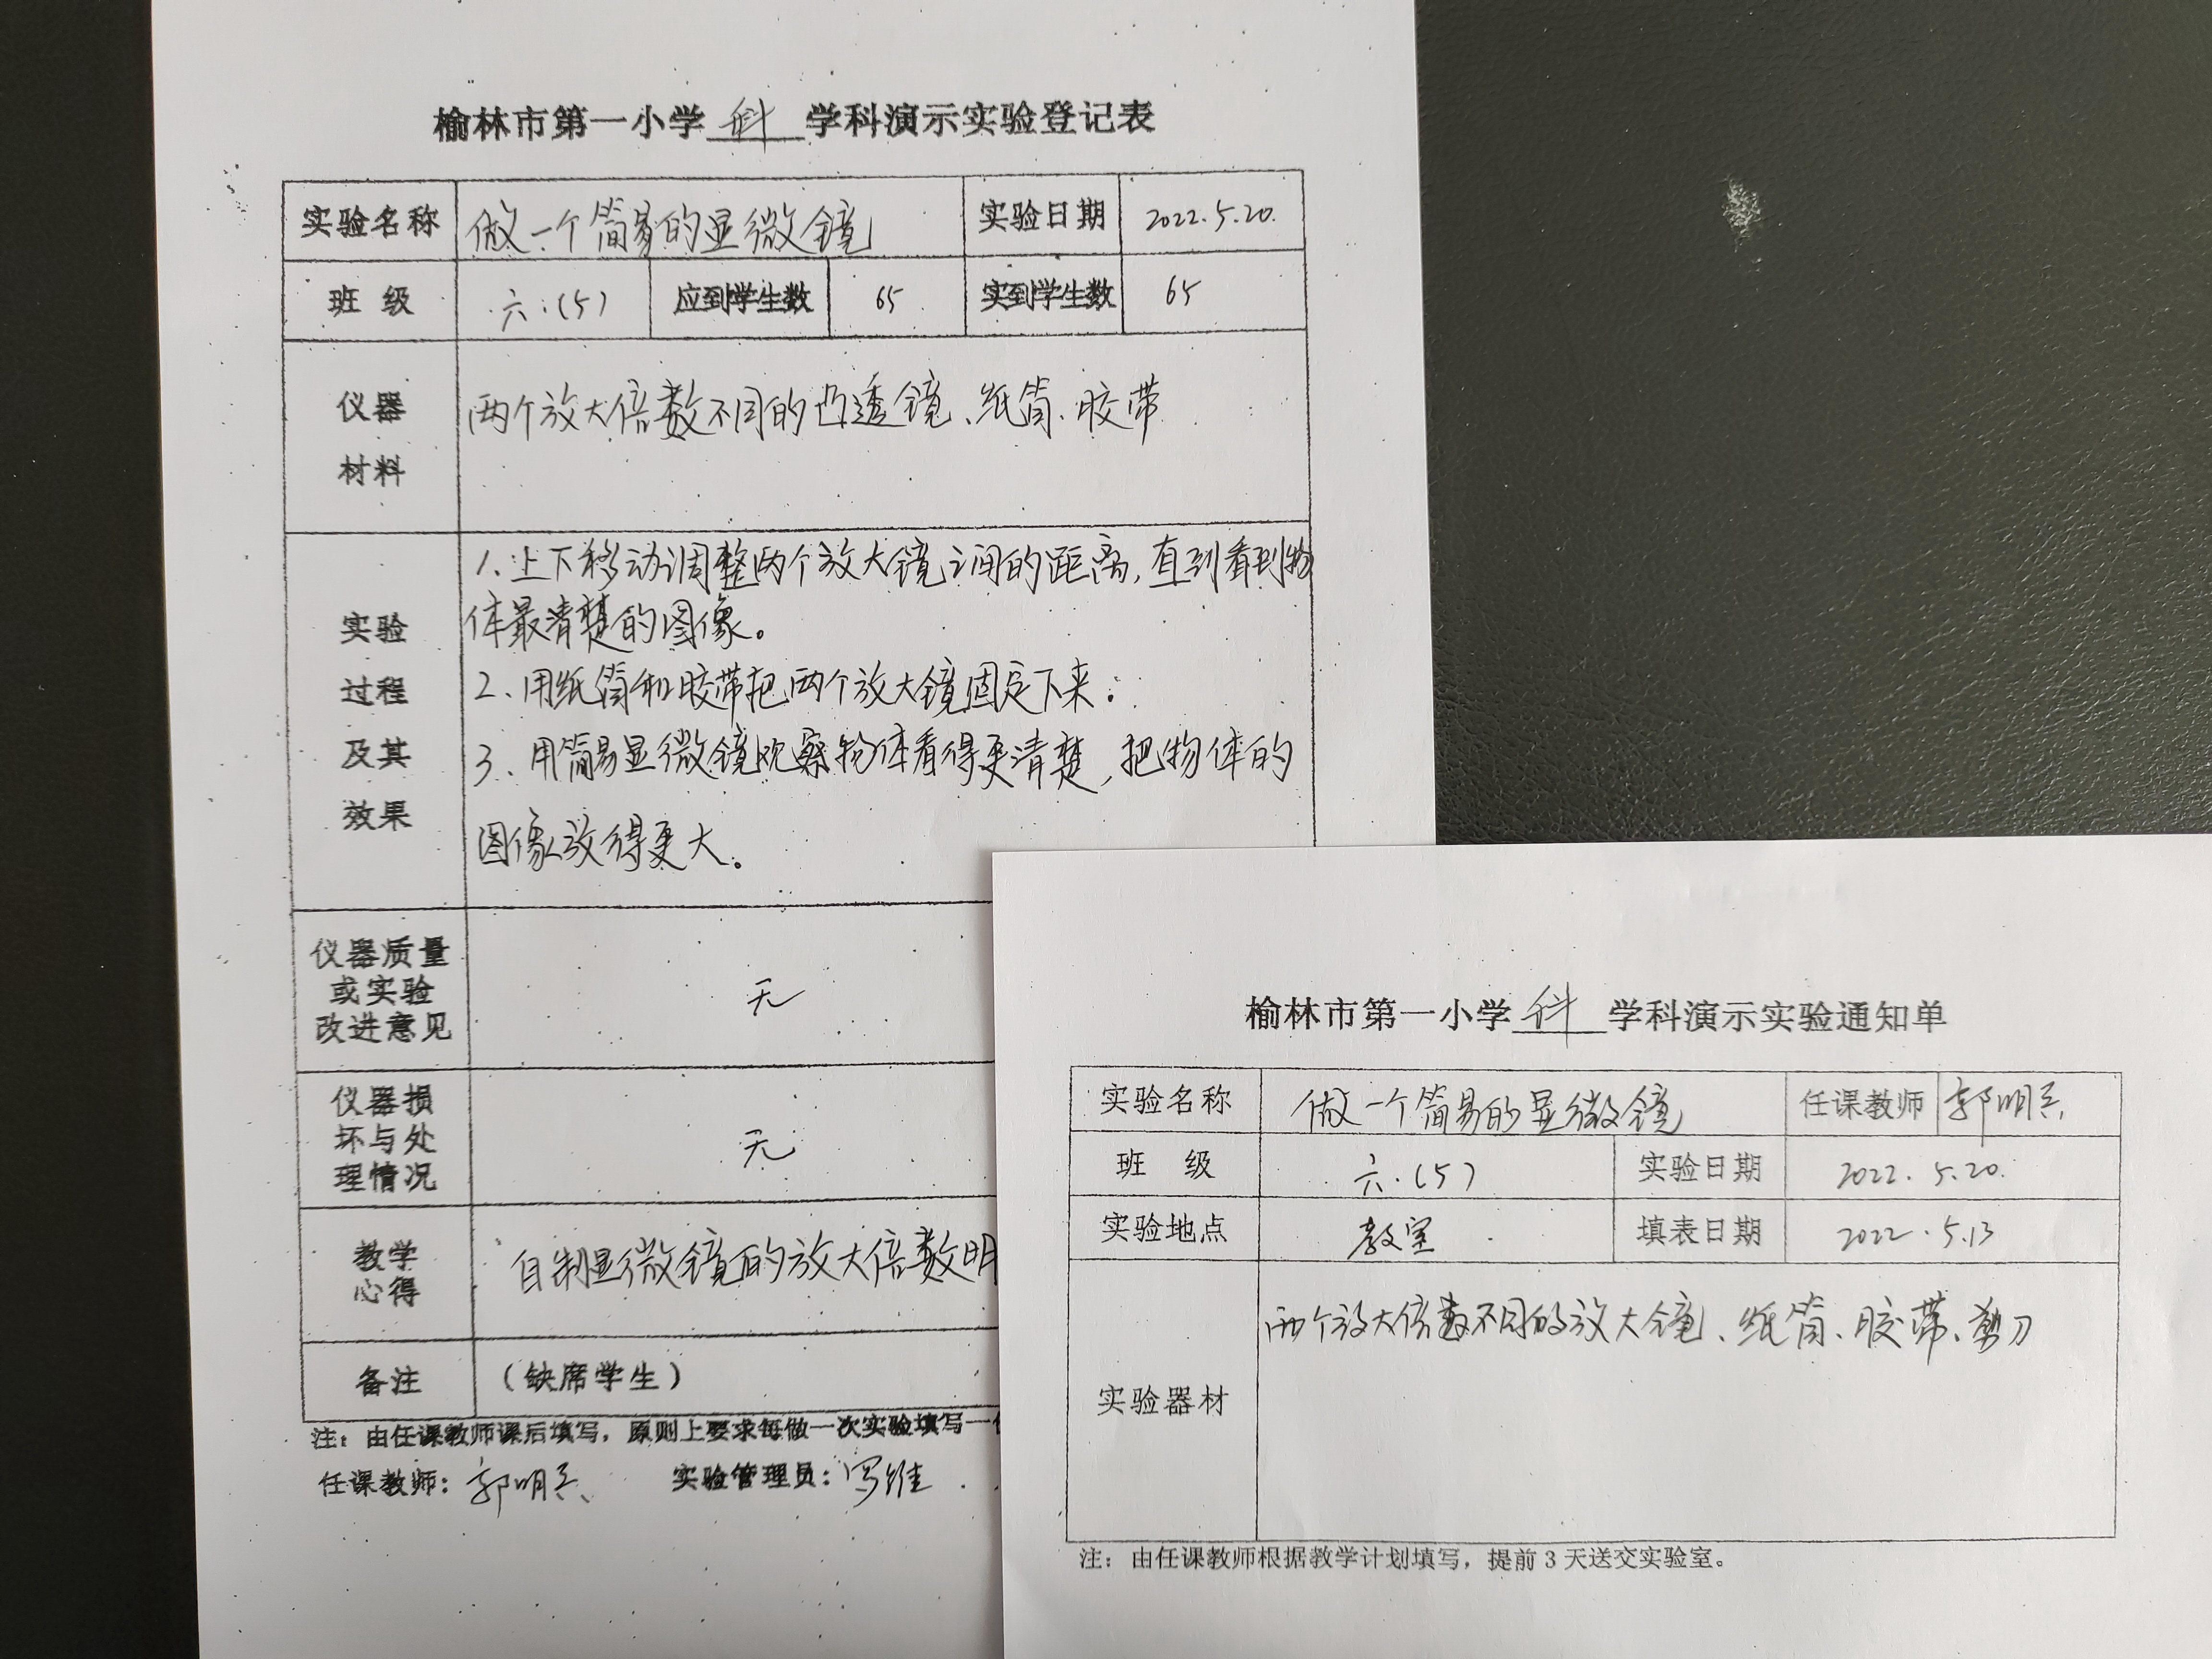 榆林市第一小学 科 学科演示实验登记表
实验名称 做一个简易的显微镜 实验日期 2022.5.20.
班 级 六.(5) 应到学生数 65 实到学生数 65
仪器 材料 两个放大倍数不同的凸透镜、纸筒、胶带
实验 过程 及其 效果
1、上下移动调整两个放大镜之间的距离,直到看到物
体最清楚的图像。
2、用纸筒和胶带把两个放大镜固定下来。
3、用简易显微镜观察物体看得更清楚,把物体的
图像放得更大。
仪器质量
或实验
改进意见
无
仪器损
坏与处
理情况
无
教学
心得
自制显微镜的放大倍数明
备注 （缺席学生）
注：由任课教师课后填写，原则上要求每做一次实验填写一
任课教师：郭明兵 实验管理员：
榆林市第一小学 科 学科演示实验通知单
实验名称 做一个简易的显微镜 任课教师 郭明兵
班 级 六.(5) 实验日期 2022.5.20.
实验地点 教室 填表日期 2022.5.13
实验器材 两个放大倍数不同的放大镜、纸筒、胶带、剪刀
注：由任课教师根据教学计划填写，提前 3 天送交实验室。